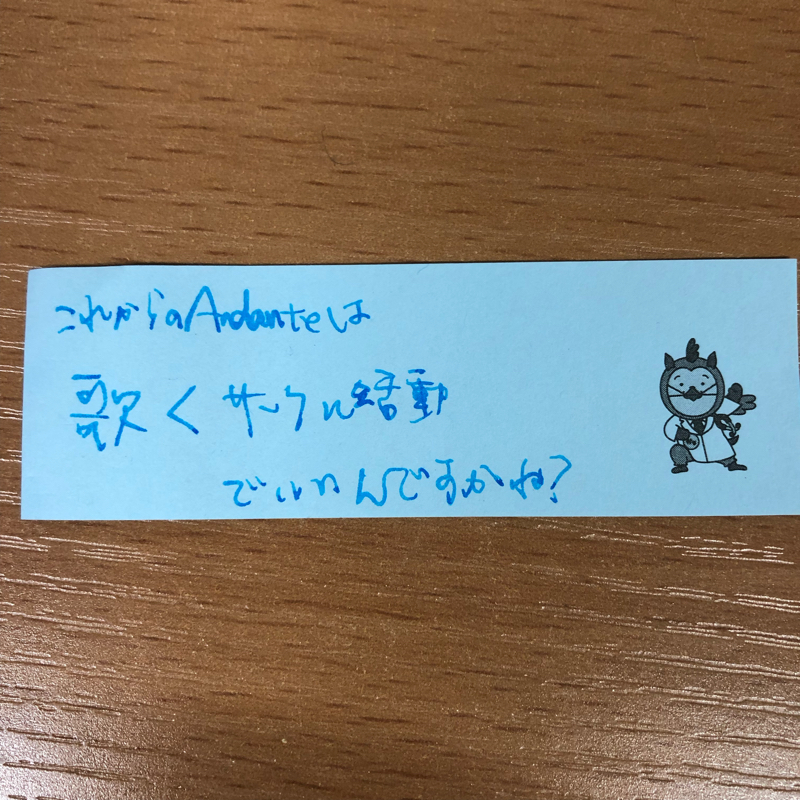 これからのAndanteは
歌く サークル活動
でいいんですかね?